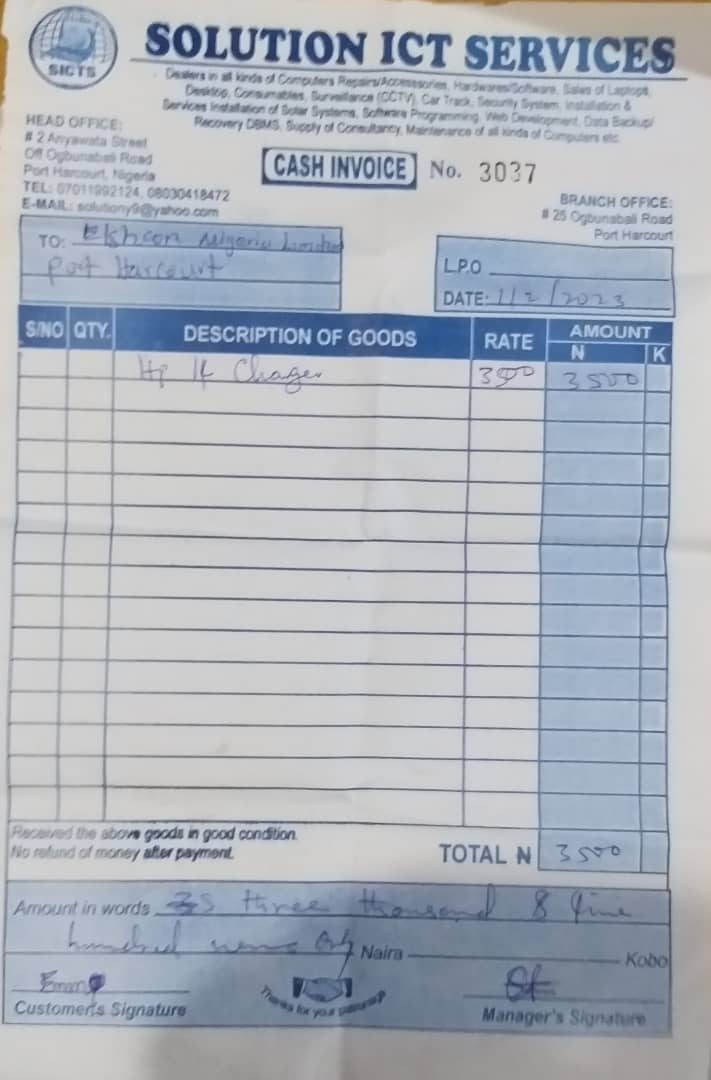 SICTS
SOLUTION ICT SERVICES
Dealers in all kinds of Computers Repairs/Accessories, Hardwares/Software, Sales of Laptops,
Desktop, Consumables, Surveillance (CCTV), Car Track, Security System, Installation &
Services Installation of Solar Systems, Software Programming, Web Development, Data Backup/
Recovery DBMS, Supply of Consultancy, Maintenance of all kinds of Computers etc.
HEAD OFFICE:
# 2 Anyawata Street
Off Ogbunabali Road
Port Harcourt, Nigeria
TEL: 07011992124, 08030418472
E-MAIL: solutiony9@yahoo.com
CASH INVOICE No. 3037
BRANCH OFFICE:
# 25 Ogbunabali Road
Port Harcourt
TO: Nigeria Limited
Port Harcourt
L.P.O
DATE: 1/2/2023
S/NO QTY. DESCRIPTION OF GOODS RATE AMOUNT
N K
Hp Chager 3500 3500
Received the above goods in good condition.
No refund of money after payment.
TOTAL N 3500
Amount in words three thousand & five
hundred only Naira Kobo
Customer's Signature
Thanks for your patronage
Manager's Signature